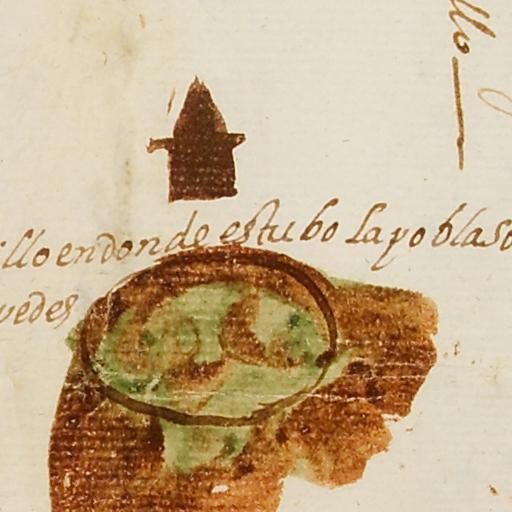 llo
llo en donde estubo la poblaso
vedes